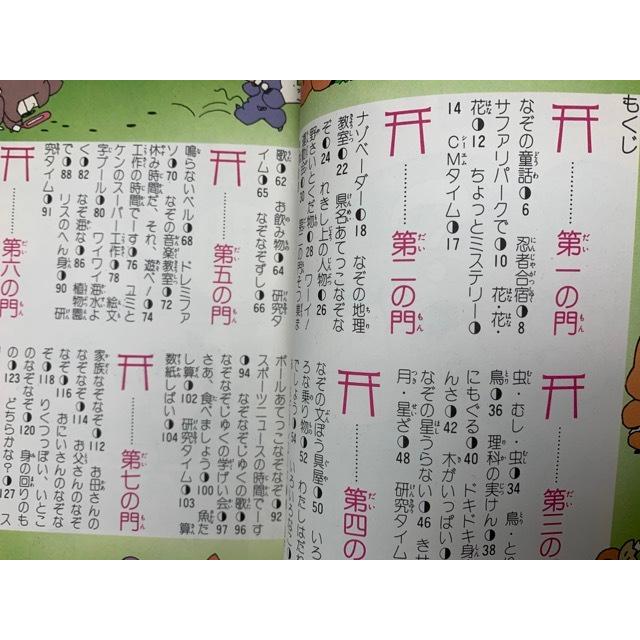 もくじ
第一の門
なぞの童話◗6 忍者合宿◗8
サファリパークで◗10 花・花・
花◗12 ちょっとミステリー◗
14 CMタイム◗17
第二の門
ナゾベーダー◗18 なぞの地理
教室◗22 県名あてっこなぞな
ぞ◗24 れきし上の人物◗26
野さいとくだ物◗28 ワーイ
第三の
虫・むし 虫◗34 鳥・とり
鳥◗36 理科の実けん◗38
にもぐる◗40 ドキドキ身
んさ◗42 木がいっぱい◗
なぞの星うらない◗46 きせ
月・星ざ◗48 研究タイム
第四の
なぞの文ぼう具屋◗50 いろ
ろな乗り物◗52 わたしはだれ
でしょう◗54
第五の門
歌◗62 お飲み物◗64 研究タ
イム◗65 なぞなぞずし◗66
鳴らないベル◗68 ドレミファ
ソ◗70 なぞの音楽教室◗72
休み時間だ、それ、遊べ!◗74
工作の時間でーす◗76 ユミと
ケンのスーパー工作◗78 絵文
字プール◗80 ワイワイ海水よ
く◗82 なぞ海な◗86 植物園
で◗88 リスのへん身◗90 研
究タイム◗91
第六の門
ボールあてっこなぞなぞ◗92
スポーツニュースの時間でーす
◗94 なぞなぞじゅくの歌◗96
なぞなぞじゅくの学げい会◗97
さあ、食べましょう◗100 魚た
し算◗102 研究タイム◗103 算
数紙しばい◗104
第七の門
家族なぞなぞ◗112 お母さんの
なぞ◗114 お父さんのなぞ
なぞ◗116 おにいさんのなぞな
ぞ◗118 りくつっぽい、いとこ
のなぞなぞ◗120 身の回りのも
の◗123 どちらかな?◗127 ス